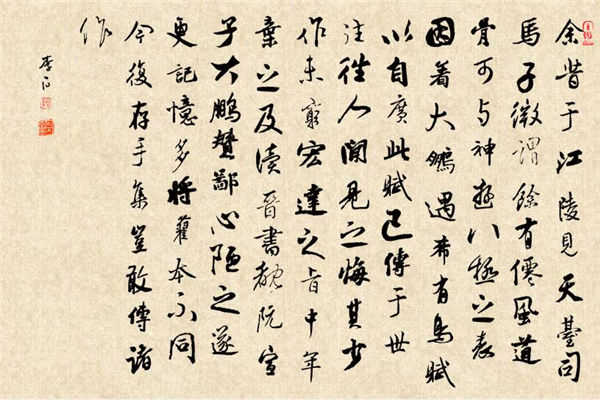 余昔于江陵見天臺司
馬子微謂餘有僊風道
骨可与神遊八極之表
因着大鵬遇希有鳥賦
以自廣此賦已傳于世
往往人間見之悔其少
作未窮宏達之旨中年
棄之及讀晉書覩阮宣
子大鵬贊鄙心陋之遂
更記憶多將舊本不同
今復存手集豈敢傳諸
作
李白